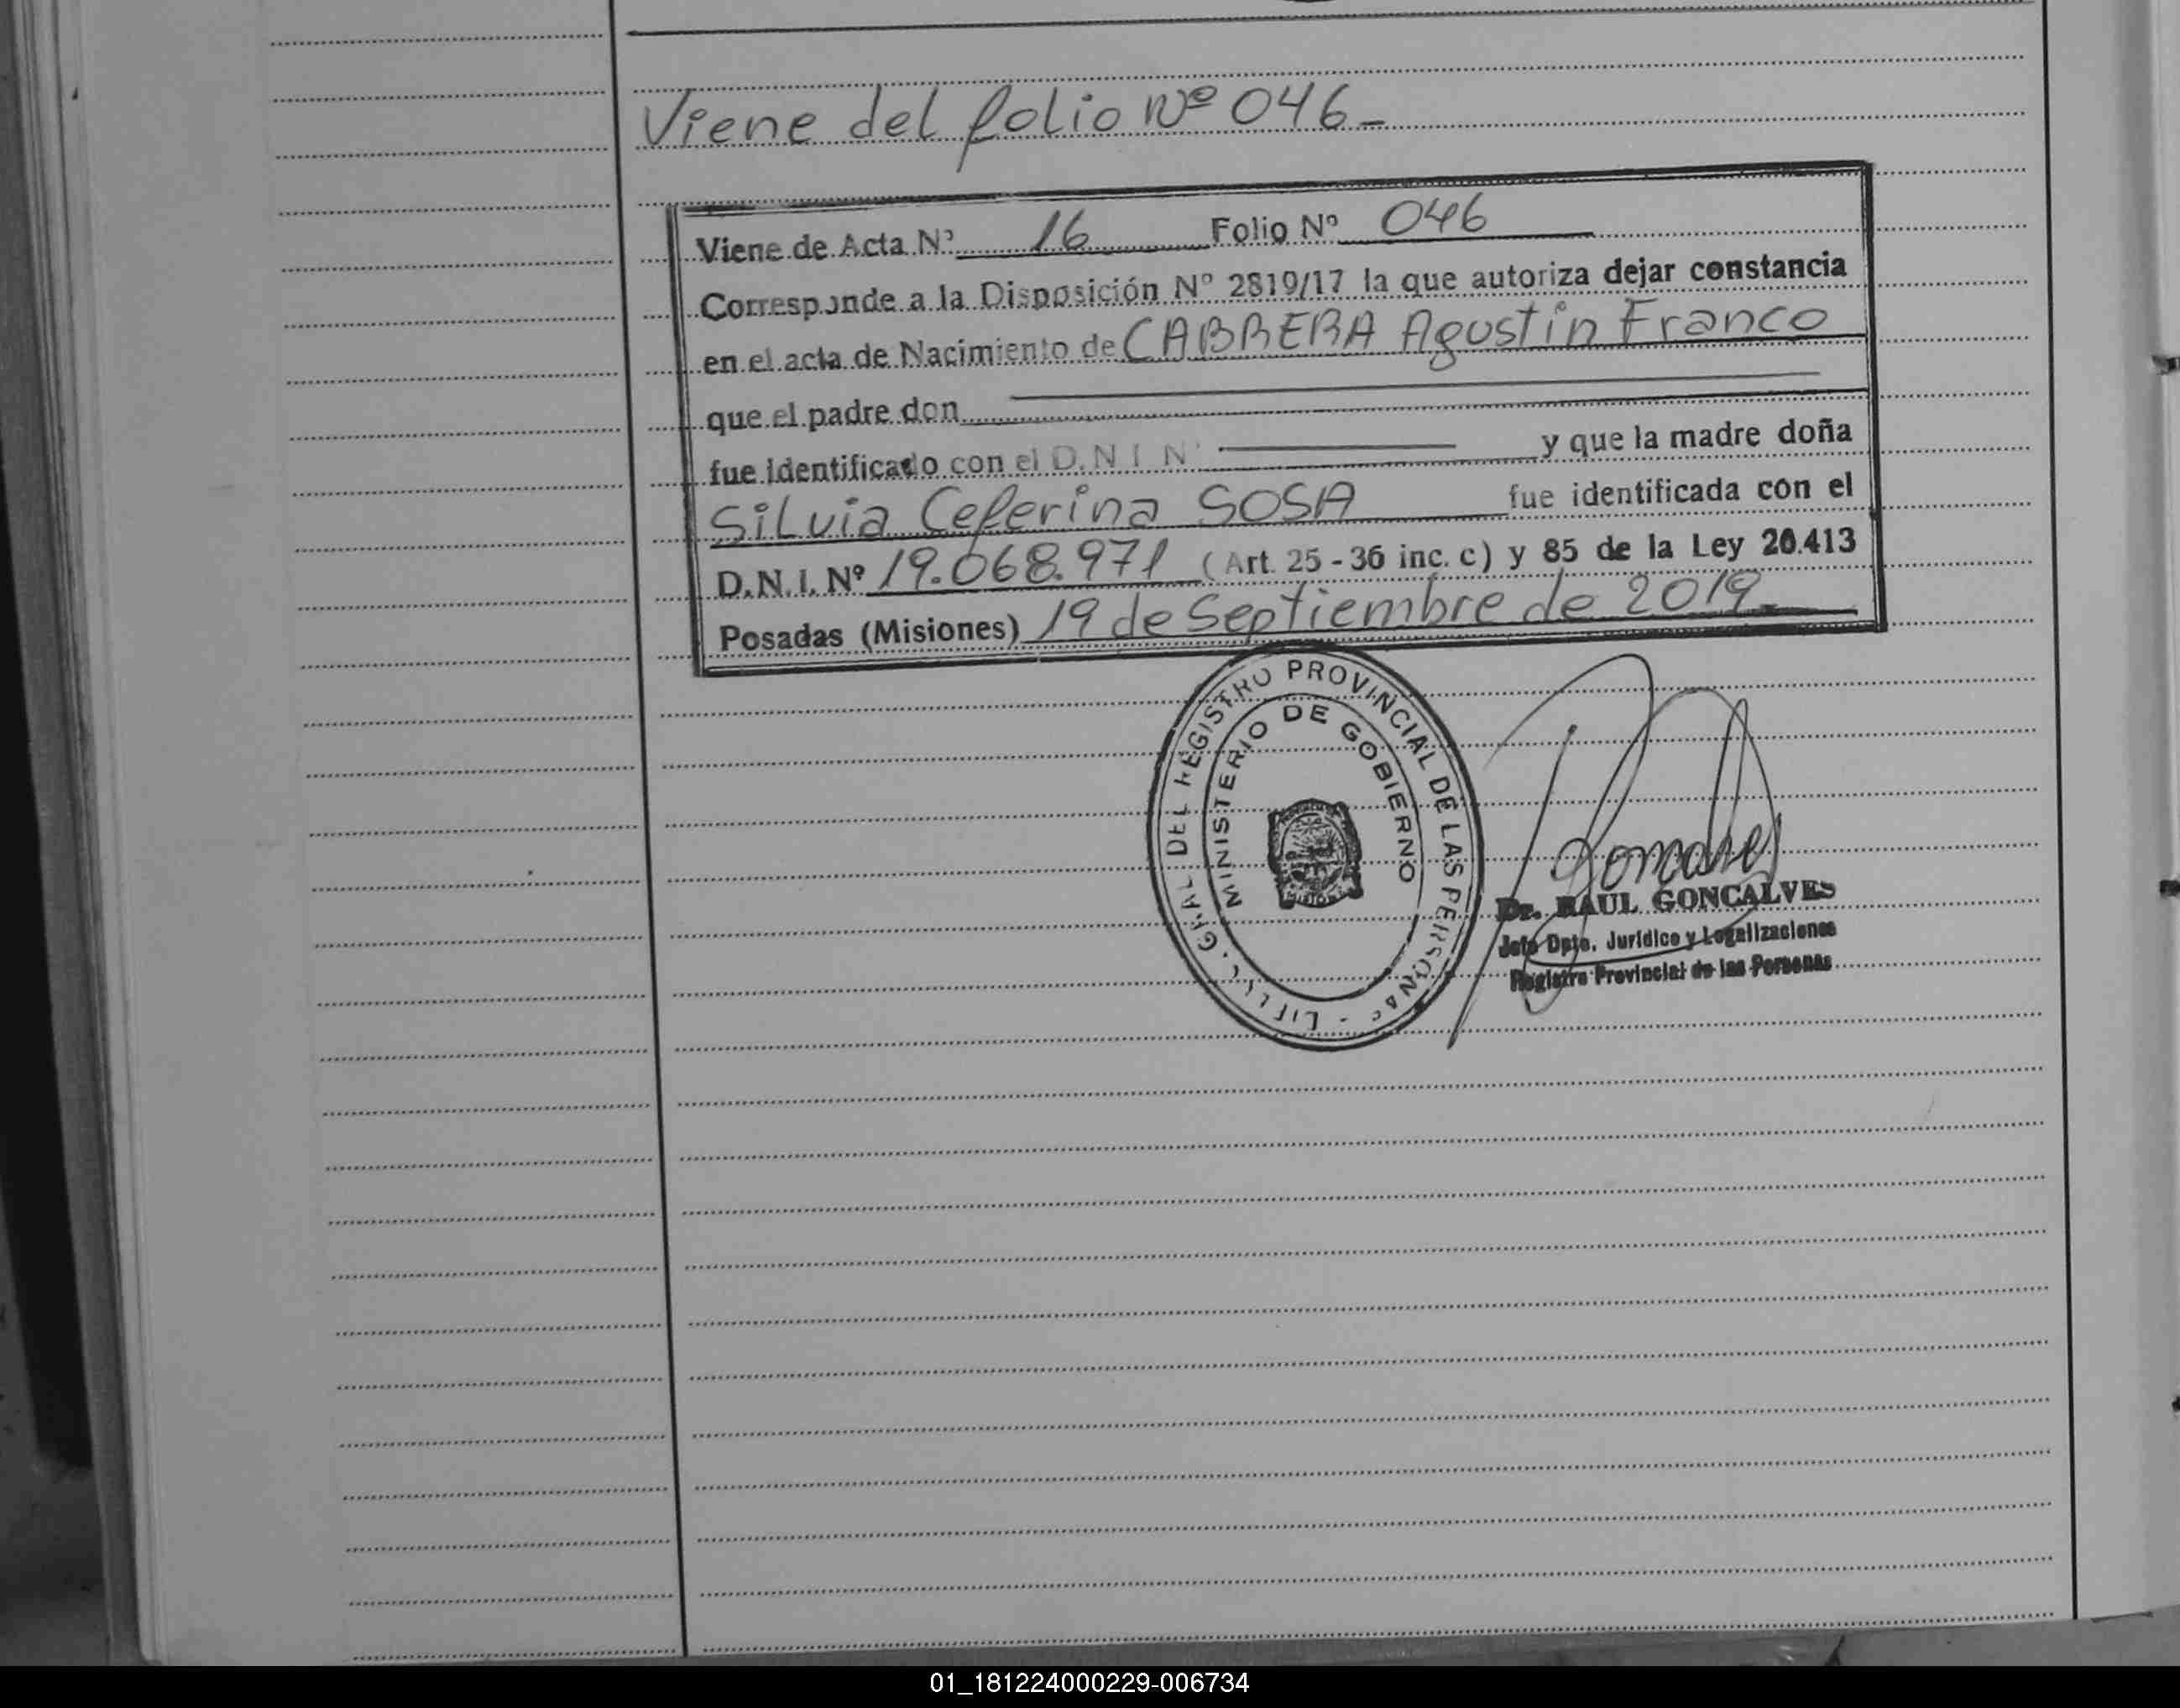 Viene del folio Nº 046-
Viene de Acta Nº 16 Folio Nº 046
Corresponde a la Disposición Nº 2819/17 la que autoriza dejar constancia
en el acta de Nacimiento de CABRERA Agustin Franco
que el padre don
fue identificado con el D.N.I. Nº y que la madre doña
Silvia Ceferina SOSA fue identificada con el
D.N.I. Nº 19.068.971 (Art. 25 - 36 inc. c) y 85 de la Ley 26.413
Posadas (Misiones) 19 de Septiembre de 2019-
GRAL. DEL REGISTRO PROVINCIAL DE LAS PERSONAS
MINISTERIO DE GOBIERNO
Dr. RAUL GONCALVES
Jefe Dpto. Jurídico y Legalizaciones
Registro Provincial de las Personas
01_181224000229-006734